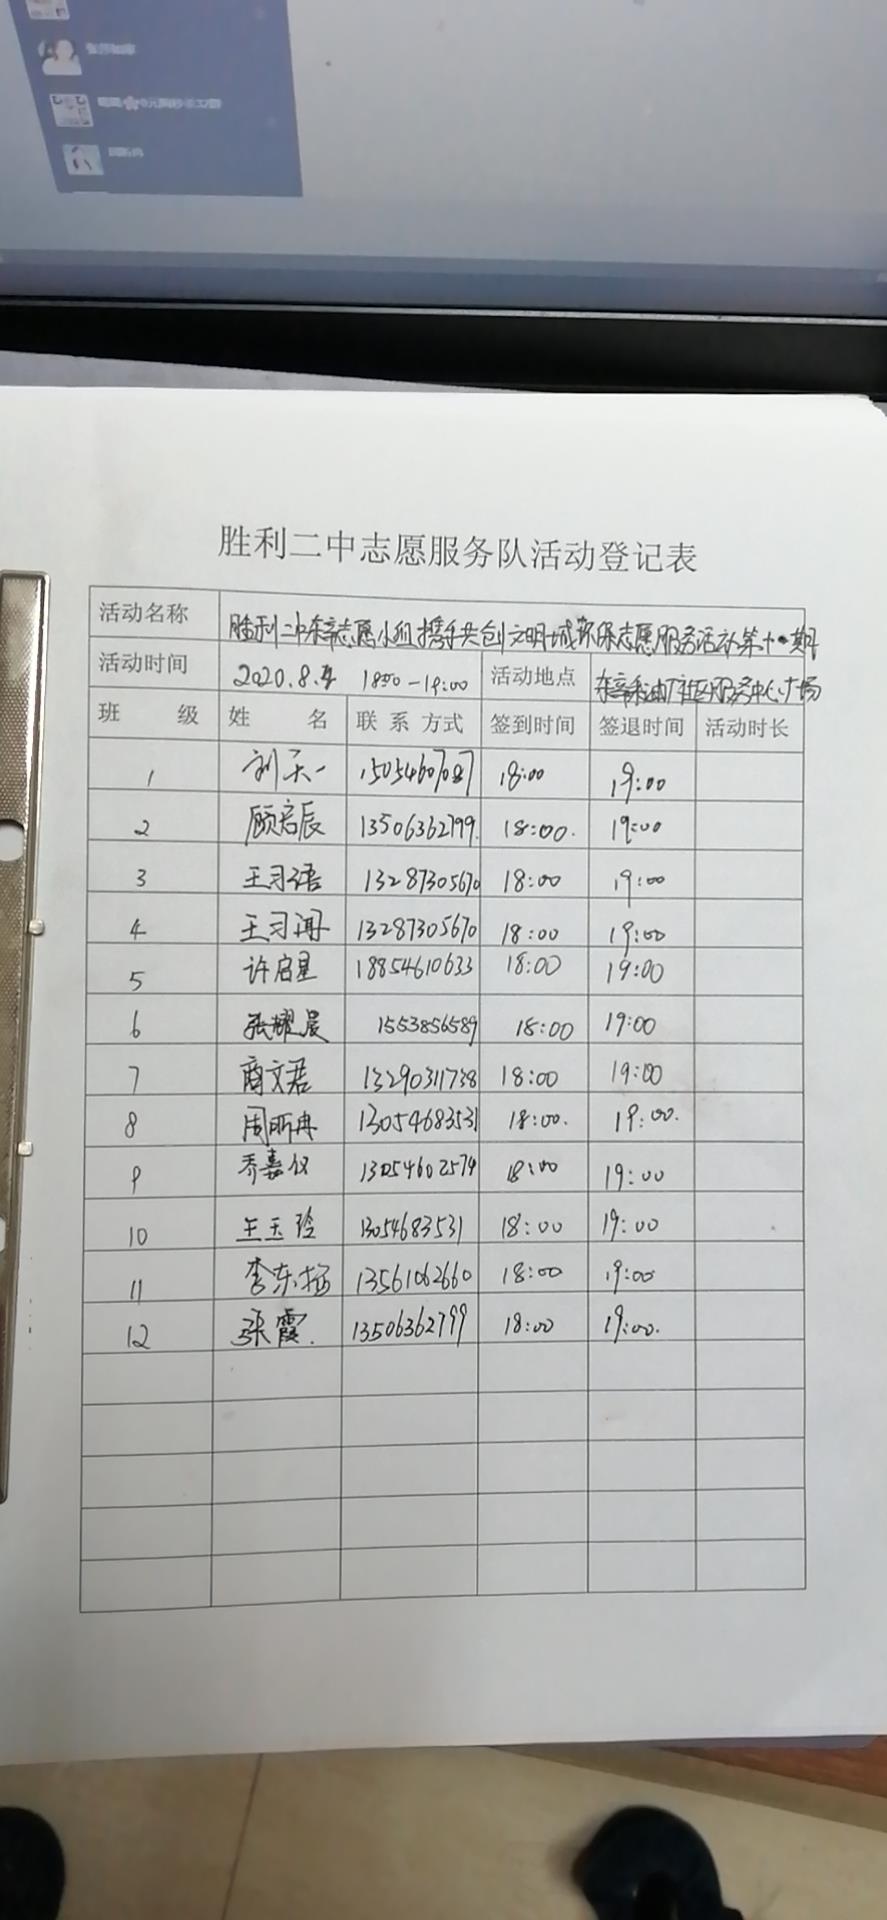 胜利二中志愿服务队活动登记表
活动名称 胜利二中东辛志愿小组携手共创文明城环保志愿服务活动第十一期
活动时间 2020.8.4 18:00-19:00 活动地点 东辛采油厂社区服务中心广场
班 级 姓 名 联系方式 签到时间 签退时间 活动时长
1 刘天一 15054607087 18:00 19:00
2 顾启辰 13506362799. 18:00. 19:00
3 王习语 13287305670 18:00 19:00
4 王习闻 13287305670 18:00 19:00
5 许启星 18854610633 18:00 19:00
6 张耀晨 1553856589 18:00 19:00
7 商文君 13290311738 18:00 19:00
8 周昕冉 13054683531 18:00. 19:00.
9 乔嘉仪 13054602579 18:00 19:00
10 王玉玲 13054683531 18:00 19:00
11 李东梅 13561062660 18:00 19:00
12 张霞. 13506362799 18:00 19:00.